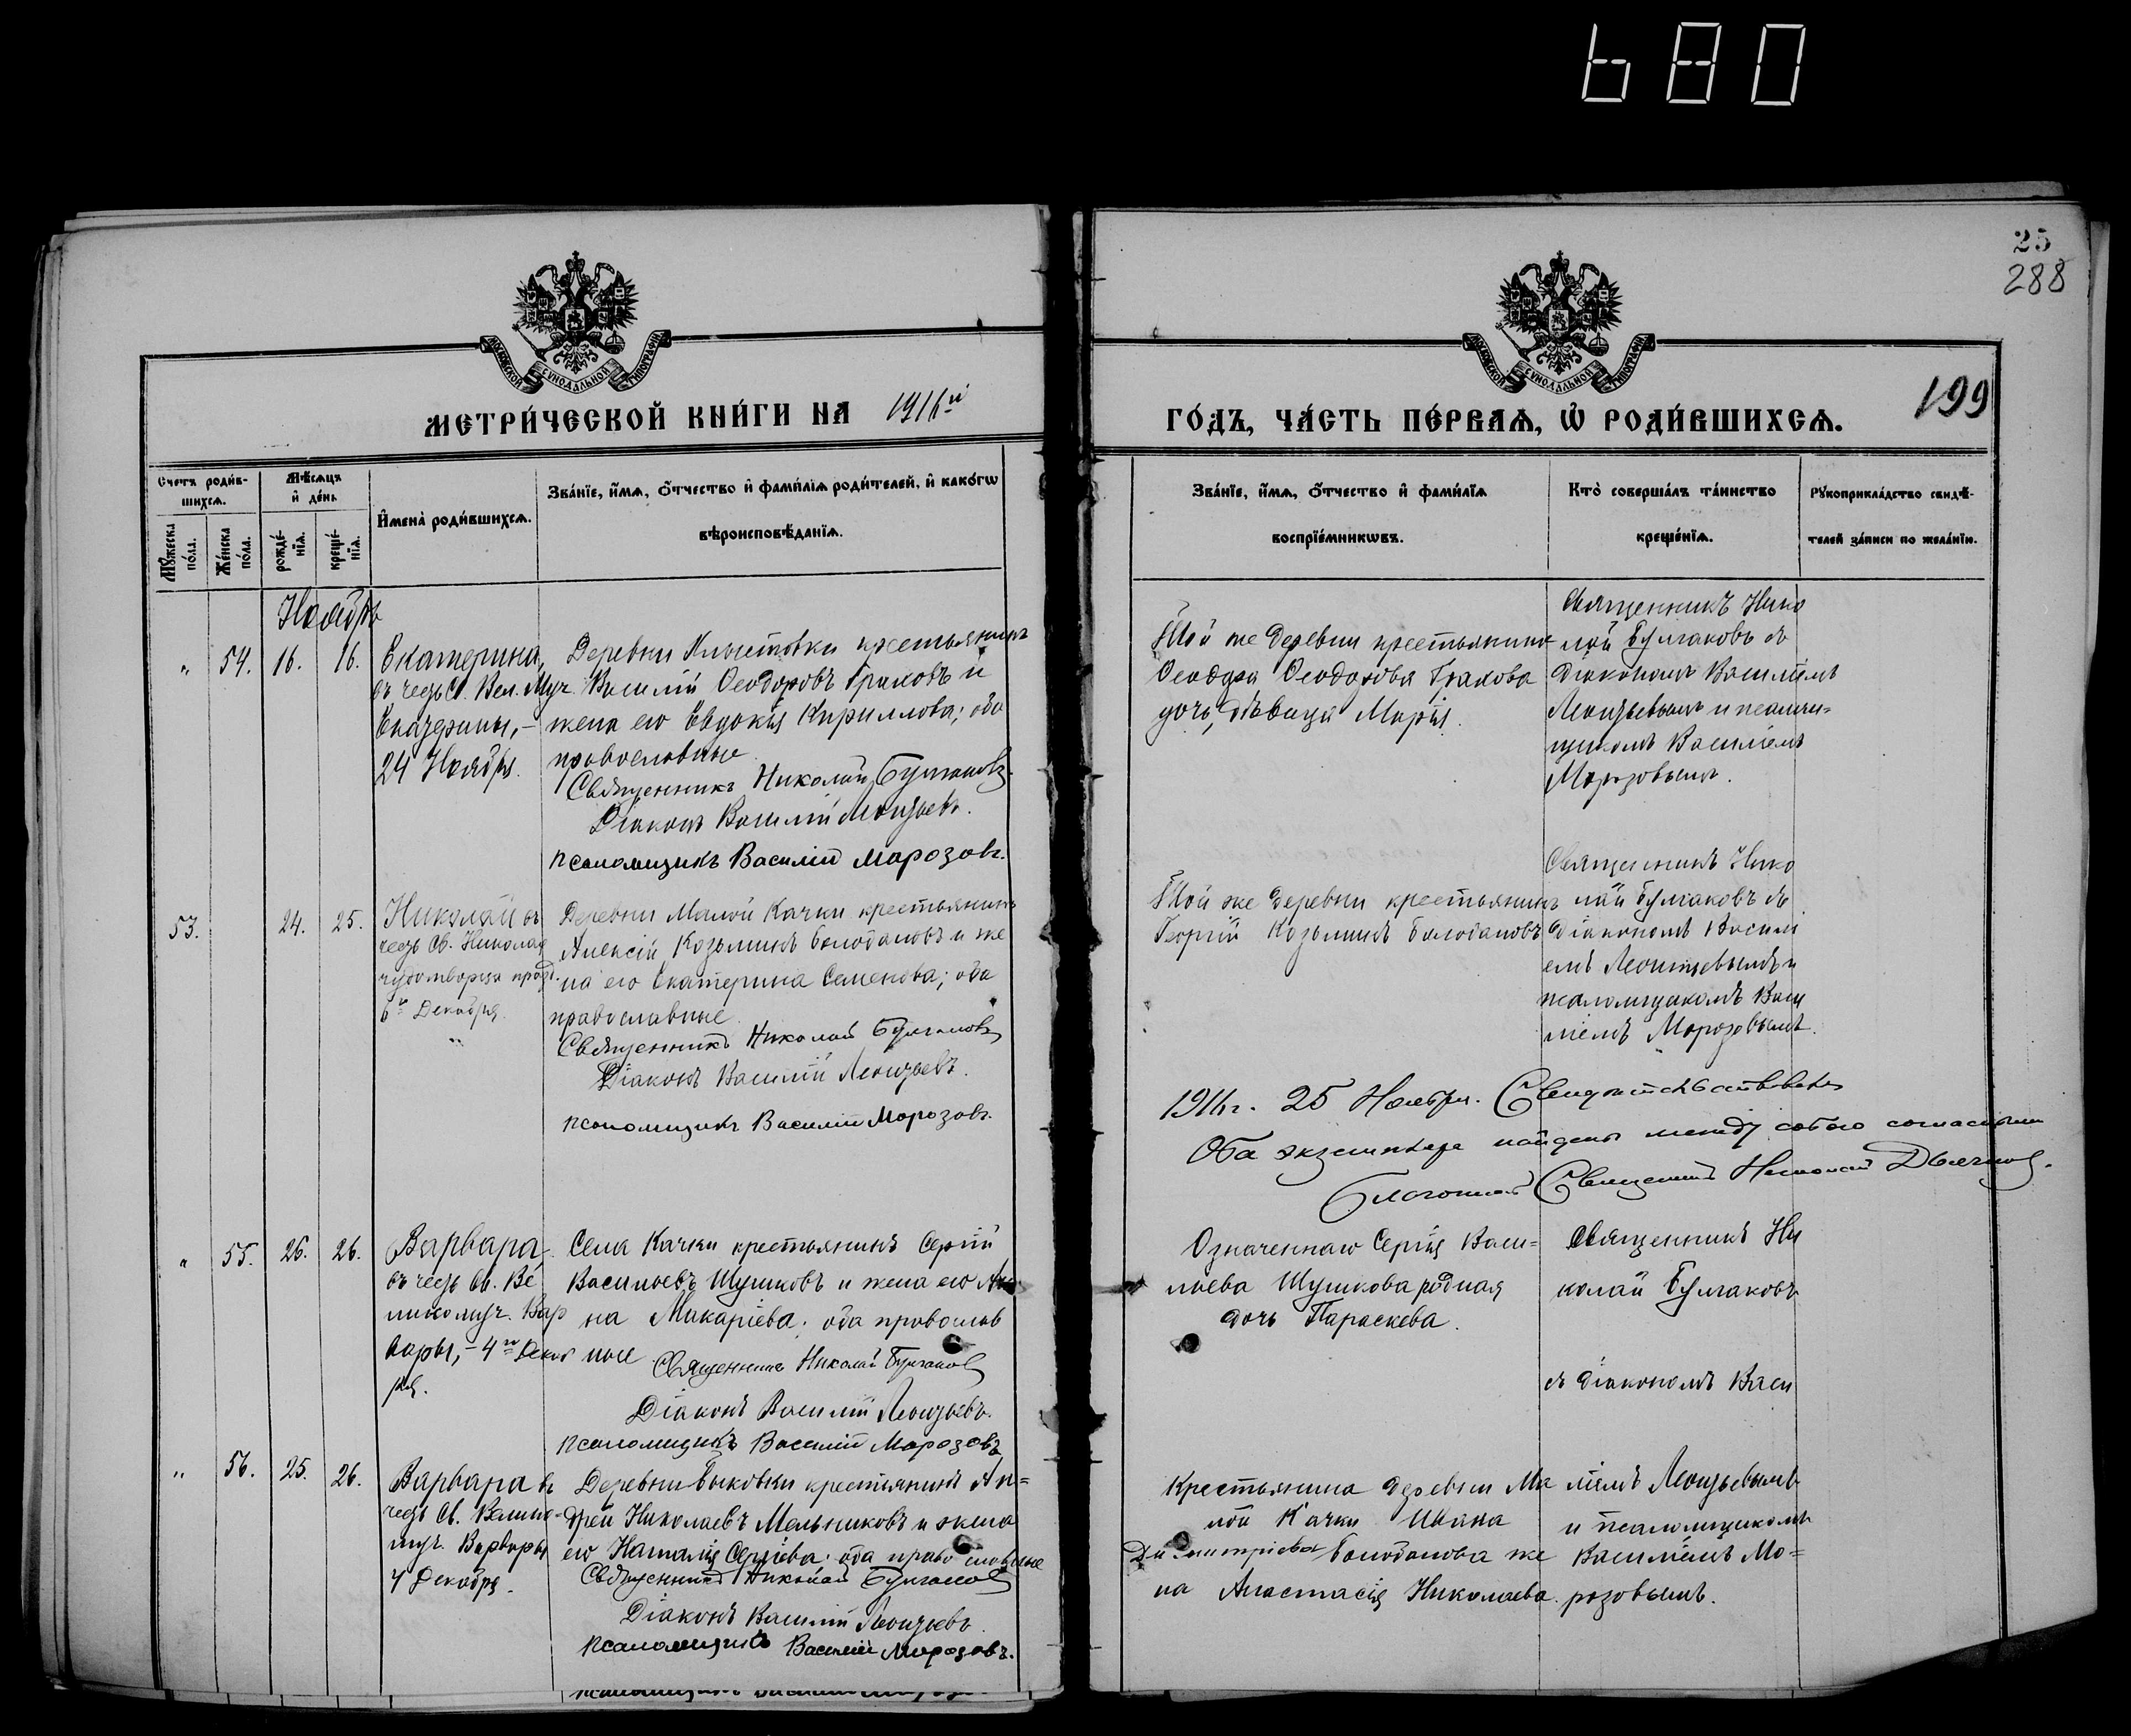 680
25
288
МОСКОВСКОЙ СУНОДАЛЬНОЙ ТИПОГРАФІИ
МОСКОВСКОЙ СУНОДАЛЬНОЙ ТИПОГРАФІИ
МЕТРИ́ЧЕСКОЙ КНИ́ГИ НА 1911й
ГО́ДЪ, ЧА́СТЬ ПЕ́РВАѦ, Ѡ҆ РОДИ́ВШИХСѦ.
199
Счетъ роди́в-
шихсѧ.
Мꙋ́жеска по́ла.
Же́нска по́ла.
Мѣ́сѧцъ
и҆ де́нь
рожде́-
нїѧ.
креще́-
нїѧ.
И҆мена̀ роди́вшихсѧ.
Зва́нїе, и҆́мѧ, ѻ҆́тчество и҆ фами́лїѧ роди́телей, и҆ како́гѡ
вѣроисповѣ́данїѧ.
Зва́нїе, и҆́мѧ, ѻ҆́тчество и҆ фами́лїѧ
воспрїе́мникѡвъ.
Кто̀ соверша́лъ та́инство
креще́нїѧ.
Рꙋкоприкла́дство свидѣ́-
телей за́писи по жела́нїю.
Ноябрь
" 54. 16. 16.
Екатерина,
въ честь Св. Вел. Муч.
Екатерины,-
24 Ноября.
Деревни Хлыстовки крестьянинъ
Василій Ѳеодоровъ Граковъ и
жена его Евдокія Кириллова; оба
православные
Священникъ Николай Булгаковъ.
Діаконъ Василій Леонтьевъ.
псаломщикъ Василій Морозовъ.
Той же деревни крестьянина
Ѳеодора Ѳеодорова Гракова
дочь, дѣвица Марія.
Священникъ Нико
лай Булгаковъ съ
діакономъ Василіемъ
Леонтьевымъ и псалом-
щикомъ Василіемъ
Морозовымъ.
53. 24. 25.
Николай въ
честь Св. Николая
чудотворца празд.
6го Декабря.
"
Деревни Малой Качки крестьянинъ
Алексій Козьминъ Болобановъ и же
на его Екатерина Семенова; оба
православные
Священникъ Николай Булгаковъ
Діаконъ Василій Леонтьевъ.
псаломщикъ Василій Морозовъ.
Той же деревни крестьянинъ
Георгій Козьминъ Болобановъ
Священникъ Нико
лай Булгаковъ съ
діакономъ Васил
емъ Леонтьевымъ и
псаломщикомъ Васи
ліемъ Морозовымъ.
1911г. 25 Ноября. Свидѣтельствовалъ
Оба экземпляра найдены между собою согласными
Благочинный Священникъ Николай
" 55. 26. 26.
Варвара-
въ честь Св. Ве
ликомуч. Вар
вары,- 4го Декаб
ря.
Села Качки крестьянинъ Сергій
Васильевъ Шушковъ и жена его Ан
на Макаріева; оба православ
ные
Священникъ Николай Булгаковъ
Діаконъ Василій Леонтьевъ.
псаломщикъ Василій Морозовъ
Означеннаго Сергія Васи-
льева Шушкова родная
дочь Параскева.
Священникъ Ни
колай Булгаковъ
съ діакономъ Васи
" 56. 25. 26.
Варвара въ
честь Св. Велико-
муч. Варвары
4 Декабря.
Деревни Быковки крестьянинъ Ан-
дрей Николаевъ Мельниковъ и жена
его Наталія Сергіева; оба православные
Священникъ Николай Булгаковъ
Діаконъ Василій Леонтьевъ.
псаломщикъ Василій Морозовъ.
Крестьянина деревни Ма
лой Качки Ивана
Димитріева Болобанова же
на Анастасія Николаева.
ліемъ Леонтьевымъ
и псаломщикомъ
Василіемъ Мо-
розовымъ.